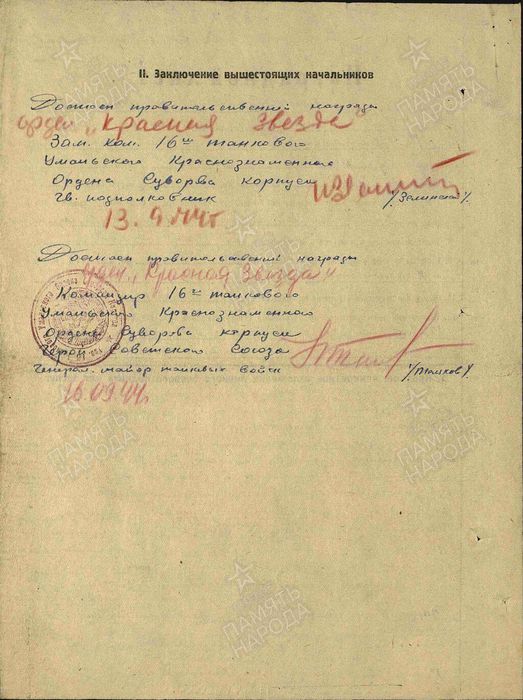 II. Заключение вышестоящих начальников
Достоен правительственной награды
орден „Красная Звезда"
Зам. ком. 16ᵍᵒ танкового
Уманьского Краснознаменного
Ордена Суворова корпуса
гв. подполковник
13.9.44г
Достоен правительственной награды
орден „Красная Звезда"
Командир 16ᵍᵒ танкового
Уманьского Краснознаменного
Ордена Суворова корпуса
Герой Советского Союза
Генерал-майор танковых войск
16.09.44г.
ПАМЯТЬ НАРОДА